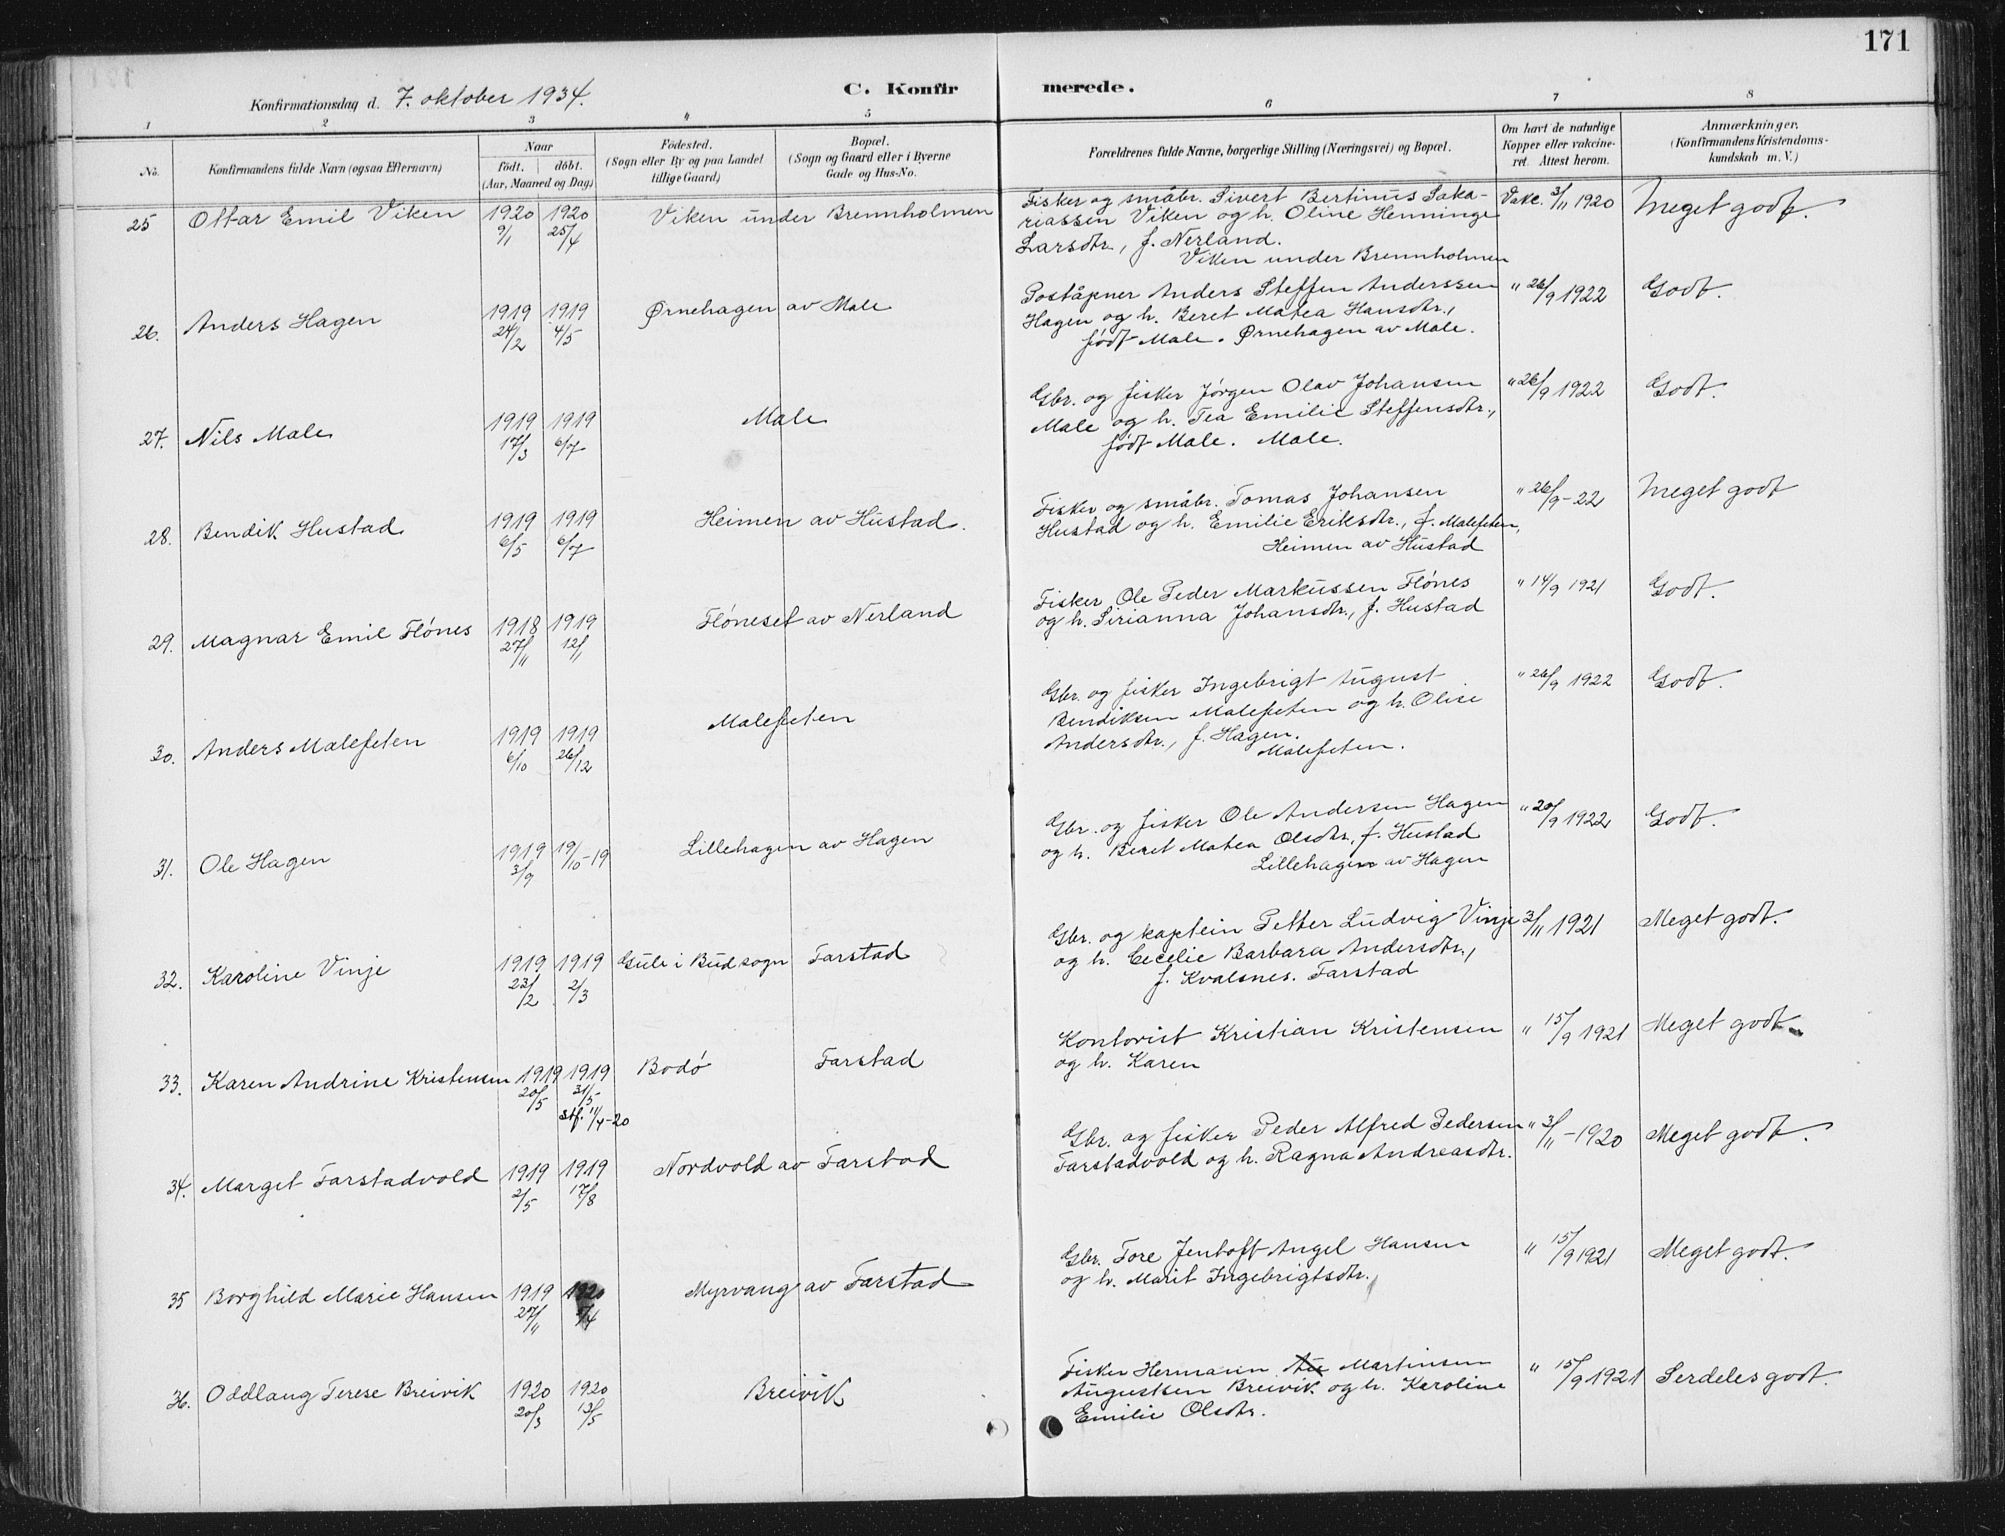 171
Konfirmationsdag d. 7. oktober 1934.
C. Konfirmerede.
1 2 3 4 5 6 7 8
No.
Konfirmandens fulde Navn (ogsaa Efternavn)
Naar
født. døbt.
(Aar, Maaned og Dag)
Fødested.
(Sogn eller By og paa Landet
tillige Gaard)
Bopæl.
(Sogn og Gaard eller i Byerne
Gade og Hus-No.
Forældrenes fulde Navne, borgerlige Stilling (Næringsvei) og Bopæl.
Om havt de naturlige
Kopper eller vakcine-
ret. Attest herom.
Anmærkninger.
(Konfirmandens Kristendoms-
kundskab m. V.)
25 Ottar Emil Viken 1920 9/1 1920 25/4 Viken under Brennholmen
Fisker og småbr. Sivert Bertinus Saka-
riassen Viken og h. Oline Henninge
Larsdtr., f. Nerland.
Viken under Brennholmen
Vakc. 3/11 1920 Meget godt.
26. Anders Hagen 1919 24/2 1919 4/5 Ørnehagen av Male
Poståpner Anders Steffen Anderssen
Hagen og h. Beret Matea Hansdtr.,
født Male. Ørnehagen av Male.
" 26/9 1922 Godt.
27. Nils Male 1919 17/3 1919 6/7 Male
Gbr. og fisker Jørgen Olav Johansen
Male og h. Tea Emilie Steffensdtr.,
født Male. Male.
" 26/9 1922 Godt.
28. Bendik Hustad 1919 6/5 1919 6/7 Heimen av Hustad.
Fisker og småbr. Tomas Johansen
Hustad og h. Emilie Eriksdtr., f. Malefeten,
Heimen av Hustad
" 26/9-22 Meget godt
29. Magnar Emil Flónes 1918 27/11 1919 12/1 Flóneset av Nerland
Fisker Ole Peder Markussen Flónes
og h. Sirianna Johansdtr., f. Hustad
" 14/9 1921 Godt.
30. Anders Malefeten 1919 6/10 1919 26/12 Malefeten
Gbr. og fisker Ingebrigt August
Bendiksen Malefeten og h. Olise
Andersdtr., f. Hagen.
Malefeten.
" 26/9 1922 Godt.
31. Ole Hagen 1919 3/9 19/10-19 Lillehagen av Hagen
Gbr. og fisker Ole Andersen Hagen
og h. Beret Matea Olsdtr., f. Hustad
Lillehagen av Hagen
" 20/9 1922 Godt.
32. Karoline Vinje 1919 23/2 1919 2/3 Gule i Bud sogn Farstad
Gbr. og kaptein Petter Ludvig Vinje
og h. Cecelie Barbara Andersdtr.,
f. Kvalsnes. Farstad
3/11 1921 Meget godt.
33. Karen Andrine Kristensen 1919 20/5 1919 31/5 stf. 11/4-20 Bodó Farstad
Kontorist Kristian Kristensen
og h. Karen
" 15/9 1921 Meget godt
34. Marget Farstadvold 1919 2/5 1919 17/8 Nordvold av Farstad
Gbr. og fisker Peder Alfred Pedersen
Farstadvold og h. Ragna Andreasdtr.
" 3/11-1920 Meget godt.
35 Borghild Marie Hansen 1919 27/11 1920 Myrvang av Farstad
Gbr. Tore Jentoft Angel Hansen
og h. Marit Ingebrigtsdtr.,
" 15/9 1921 Meget godt.
36. Oddlaug Terese Breivik 1920 20/3 1920 13/5 Breivik
Fisker Hermann Martinsen
Augustsen Breivik og h. Karoline
Emilie Olsdtr.
" 15/9 1921 Serdeles godt.